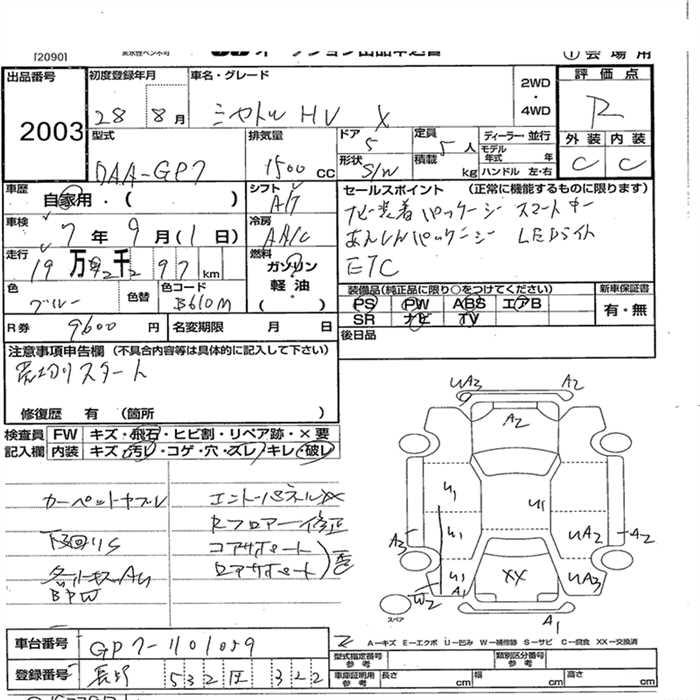 [2090]
出品番号
2003
初度登録年月
28 8月
車名・グレード
シャトル HV X
2WD
・
4WD
評価点
R
外装 内装
C C
型式
DAA-GP7
排気量
1500 CC
ドア
5
定員
5人
ディーラー・並行
モデル年式 年
形状
S/W
積載
kg
ハンドル 左・右
車歴
自家用・( )
シフト
A/T
車検
7年 9月(1日)
冷房
AA/C
走行
19万 92千 97 km
燃料
ガソリン
軽油
色
ブルー
色替
色コード
B610M
R券 9600円
名変期限 月 日
セールスポイント (正常に機能するものに限ります)
ナビ装着パッケージ スマートキー
あんしんパッケージ LEDライト
ETC
装備品(純正品に限り○をつけてください)
PS PW ABS エアB
SR ナビ TV
新車保証書
有・無
後日品
注意事項申告欄 (不具合内容等は具体的に記入して下さい)
売切りスタート
修復歴 有 (箇所 )
検査員 FW キズ・飛石・ヒビ割・リペア跡・×要
記入欄 内装 キズ・汚レ・コゲ・穴・ズレ・キレ・破レ
カーペットヤブレ
下回りS
BPW
エンドパネルXX
Rフロアー修正
コアサポート
ロアサポート
UA3
A2
A2
U1
U1
U1
A3
UA2
A2
U1
A1
XX
UA3
W2
A1
スペア
A-キズ E-エクボ U-凹み W-補修跡 S-サビ C-腐食 XX-交換済
車台番号 GP7-1101059
登録番号 長野 532 322
型式指定番号
参考
類別区分番号
参考
車庫証明用
参考
長さ cm 幅 cm 高さ cm